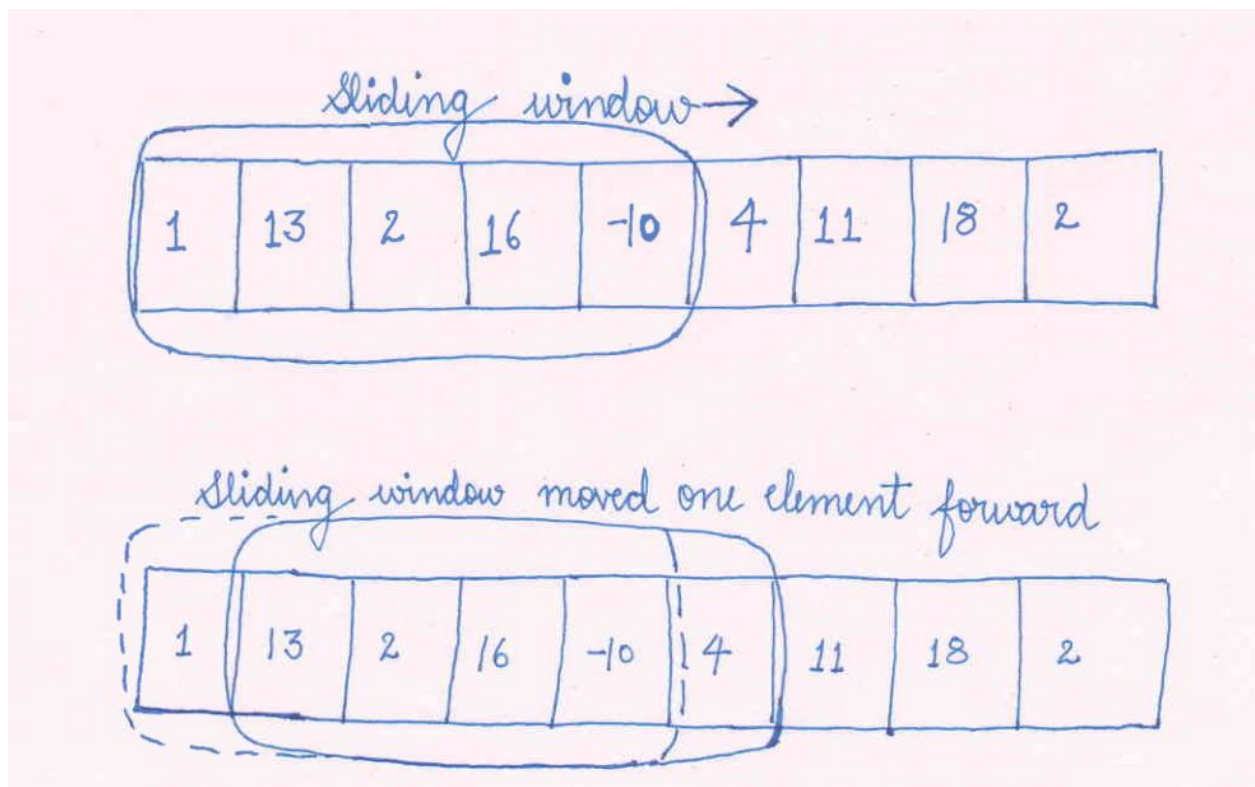 Sliding window →
1 13 2 16 -10 4 11 18 2
Sliding window moved one element forward
1 13 2 16 -10 4 11 18 2